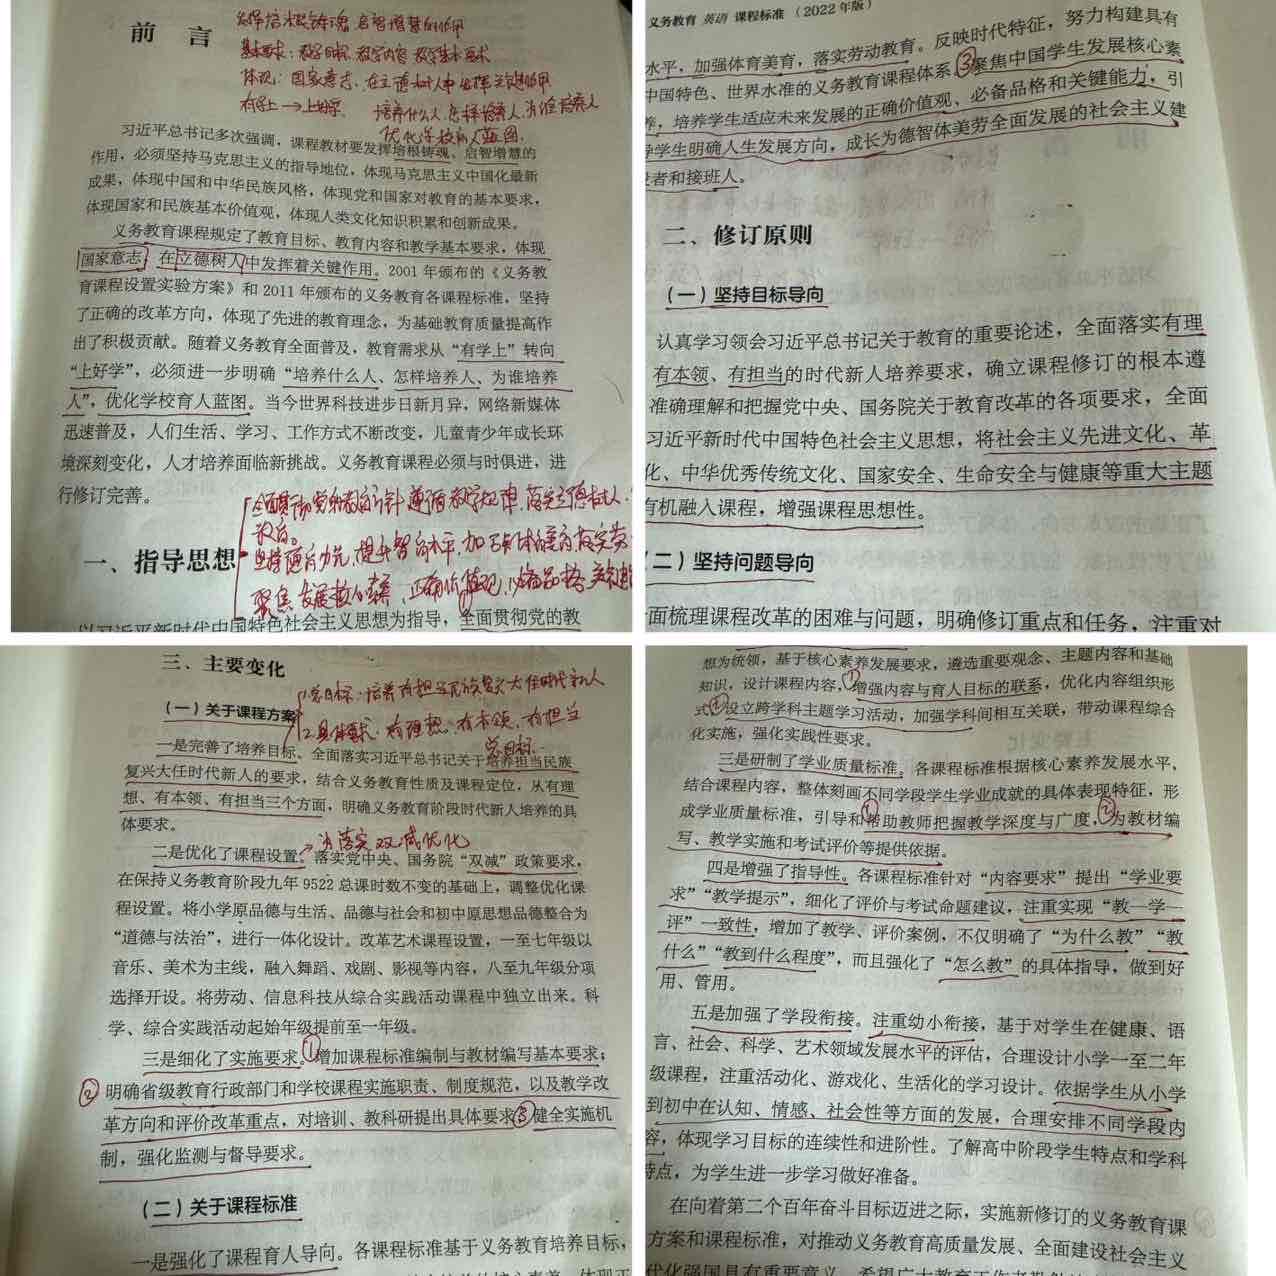 前 言
习近平总书记多次强调，课程教材要发挥培根铸魂、启智增慧的
作用，必须坚持马克思主义的指导地位，体现马克思主义中国化最新
成果，体现中国和中华民族风格，体现党和国家对教育的基本要求，
体现国家和民族基本价值观，体现人类文化知识积累和创新成果。
义务教育课程规定了教育目标、教育内容和教学基本要求，体现
国家意志，在立德树人中发挥着关键作用。2001 年颁布的《义务教
育课程设置实验方案》和 2011 年颁布的义务教育各课程标准，坚持
了正确的改革方向，体现了先进的教育理念，为基础教育质量提高作
出了积极贡献。随着义务教育全面普及，教育需求从“有学上”转向
“上好学”，必须进一步明确“培养什么人、怎样培养人、为谁培养
人”，优化学校育人蓝图。当今世界科技进步日新月异，网络新媒体
迅速普及，人们生活、学习、工作方式不断改变，儿童青少年成长环
境深刻变化，人才培养面临新挑战。义务教育课程必须与时俱进，进
行修订完善。
一、指导思想
以习近平新时代中国特色社会主义思想为指导，全面贯彻党的教
义务教育 英语 课程标准（2022 年版）
水平，加强体育美育，落实劳动教育。反映时代特征，努力构建具有
中国特色、世界水准的义务教育课程体系。③聚焦中国学生发展核心素
养，培养学生适应未来发展的正确价值观、必备品格和关键能力，引
导学生明确人生发展方向，成长为德智体美劳全面发展的社会主义建
设者和接班人。
二、修订原则
（一）坚持目标导向
认真学习领会习近平总书记关于教育的重要论述，全面落实有理
有本领、有担当的时代新人培养要求，确立课程修订的根本遵
准确理解和把握党中央、国务院关于教育改革的各项要求，全面
习近平新时代中国特色社会主义思想，将社会主义先进文化、革
化、中华优秀传统文化、国家安全、生命安全与健康等重大主题
有机融入课程，增强课程思想性。
（二）坚持问题导向
面梳理课程改革的困难与问题，明确修订重点和任务，注重对
三、主要变化
（一）关于课程方案
总目标：培养有担当民族复兴大任时代新人
2 具体要求：有理想、有本领、有担当
总目标
一是完善了培养目标。全面落实习近平总书记关于培养担当民族
复兴大任时代新人的要求，结合义务教育性质及课程定位，从有理
想、有本领、有担当三个方面，明确义务教育阶段时代新人培养的具
体要求。
落实双减优化
二是优化了课程设置。落实党中央、国务院“双减”政策要求，
在保持义务教育阶段九年 9522 总课时数不变的基础上，调整优化课
程设置。将小学原品德与生活、品德与社会和初中原思想品德整合为
“道德与法治”，进行一体化设计。改革艺术课程设置，一至七年级以
音乐、美术为主线，融入舞蹈、戏剧、影视等内容，八至九年级分项
选择开设。将劳动、信息科技从综合实践活动课程中独立出来。科
学、综合实践活动起始年级提前至一年级。
三是细化了实施要求。①增加课程标准编制与教材编写基本要求；
②明确省级教育行政部门和学校课程实施职责、制度规范，以及教学改
革方向和评价改革重点，对培训、教科研提出具体要求；③健全实施机
制，强化监测与督导要求。
（二）关于课程标准
一是强化了课程育人导向。各课程标准基于义务教育培养目标，
想为统领，基于核心素养发展要求，遴选重要观念、主题内容和基础
知识，设计课程内容，①增强内容与育人目标的联系，优化内容组织形
式。②设立跨学科主题学习活动，加强学科间相互关联，带动课程综合
化实施，强化实践性要求。
三是研制了学业质量标准。各课程标准根据核心素养发展水平，
结合课程内容，整体刻画不同学段学生学业成就的具体表现特征，形
成学业质量标准，引导和①帮助教师把握教学深度与广度，②为教材编
写、教学实施和考试评价等提供依据。
四是增强了指导性。各课程标准针对“内容要求”提出“学业要
求”“教学提示”，细化了评价与考试命题建议，注重实现“教—学—
评”一致性，增加了教学、评价案例，不仅明确了“为什么教”“教
什么”“教到什么程度”，而且强化了“怎么教”的具体指导，做到好
用、管用。
五是加强了学段衔接。注重幼小衔接，基于对学生在健康、语
言、社会、科学、艺术领域发展水平的评估，合理设计小学一至二年
级课程，注重活动化、游戏化、生活化的学习设计。依据学生从小学
到初中在认知、情感、社会性等方面的发展，合理安排不同学段内
容，体现学习目标的连续性和进阶性。了解高中阶段学生特点和学科
特点，为学生进一步学习做好准备。
在向着第二个百年奋斗目标迈进之际，实施新修订的义务教育课
方案和课程标准，对推动义务教育高质量发展、全面建设社会主义